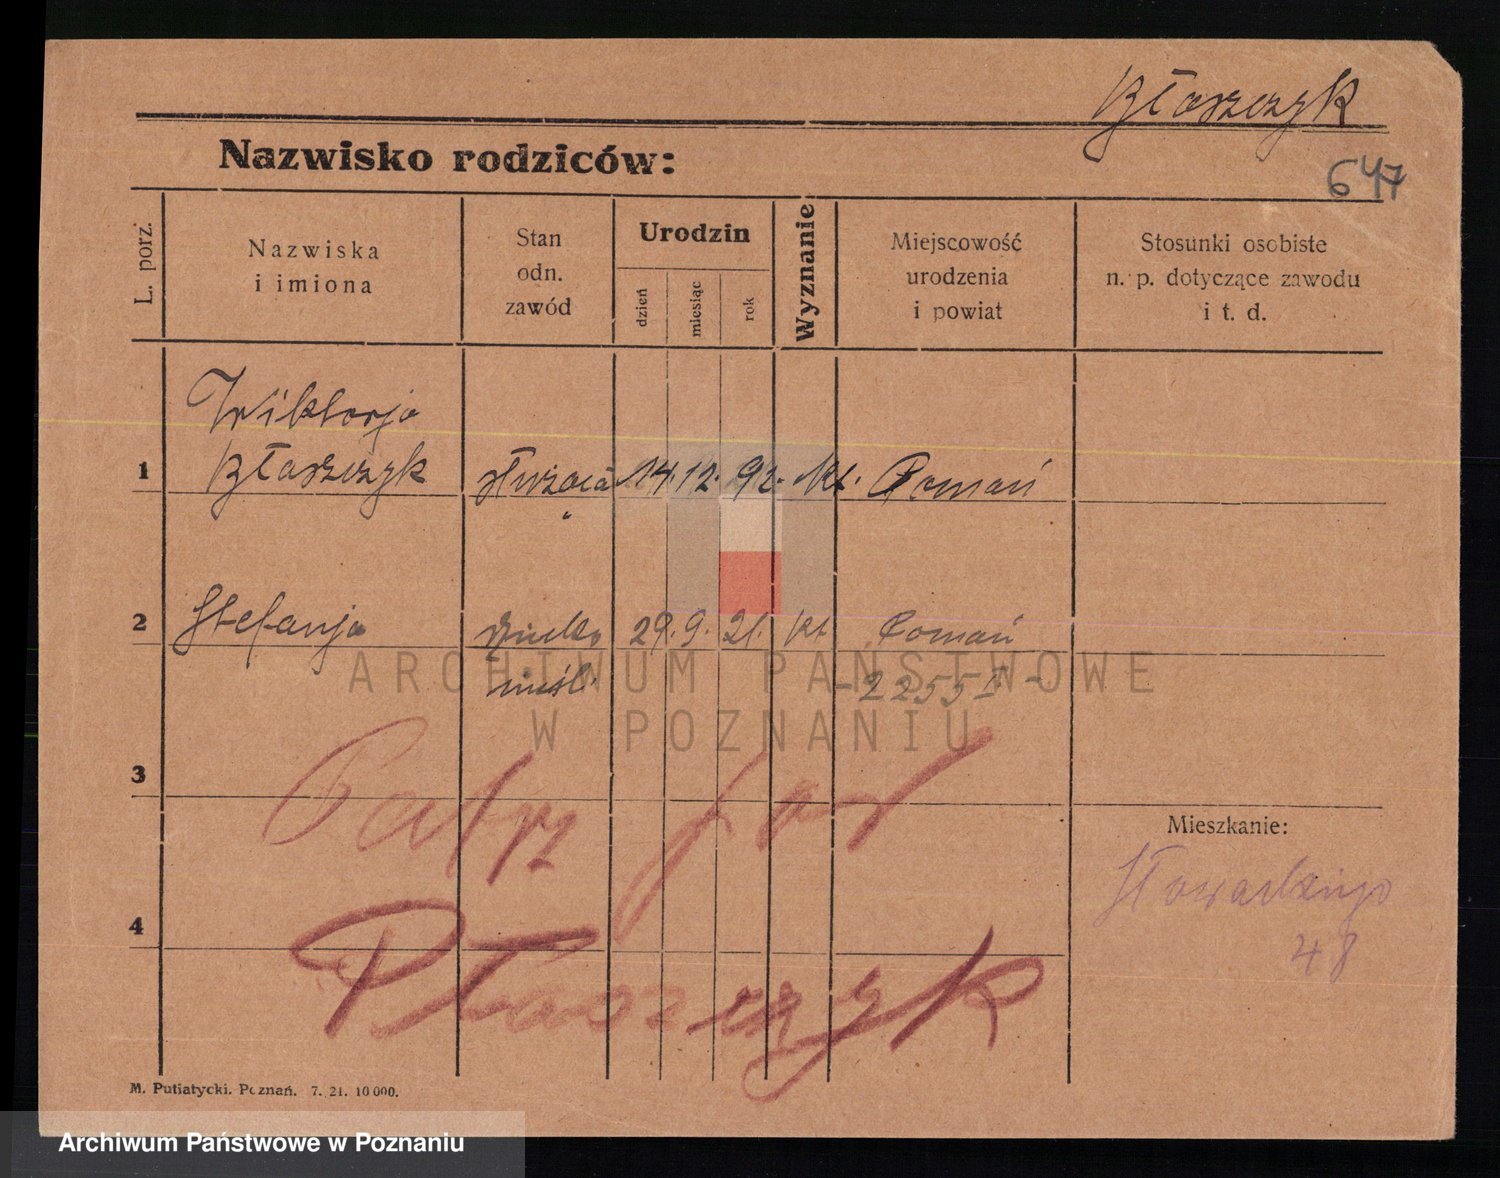 Błaszczyk
Nazwisko rodziców:
647
L. porz.
Nazwiska
i imiona
Stan
odn.
zawód
Urodzin
dzień
miesiąc
rok
Wyznanie
Miejscowość
urodzenia
i powiat
Stosunki osobiste
n. p. dotyczące zawodu
i t. d.
Wiktorja
1 Błaszczyk służąca 14. 12. 92. kt. Poznań
2 Stefanja 29. 9. 21. kt Poznań
nieśl.
ARCHIWUM PAŃSTWOWE
W POZNANIU
3
Patrz
4
Płaszczyk
Mieszkanie:
Słowackiego
48
M. Putiatycki. Poznań. 7. 21. 10 000.
Archiwum Państwowe w Poznaniu